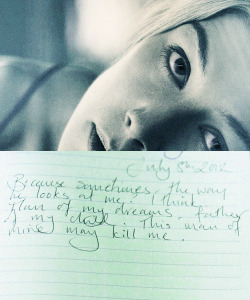 July 5th 2012
Because sometimes, the way
he looks at me. I think:
Man of my dreams, father
of my child. This man of
mine may kill me.